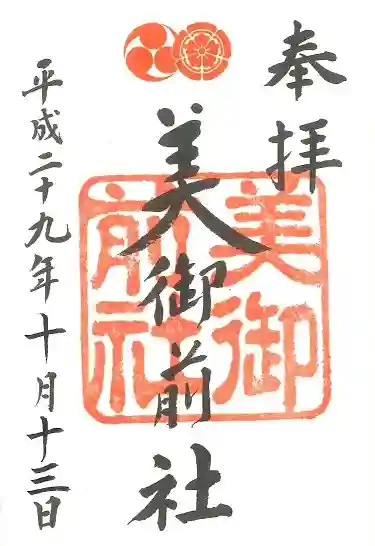 奉拝
美御前社
平成二十九年十月十三日
美御
前社